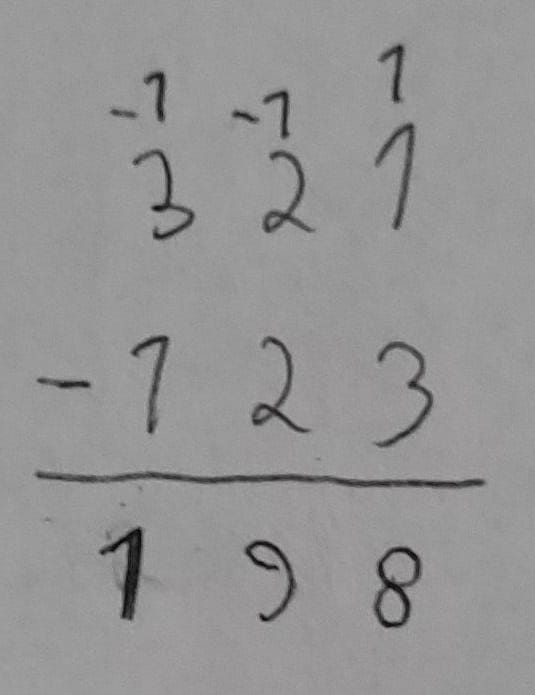 -1 -1 1
3 2 1
- 1 2 3
1 9 8